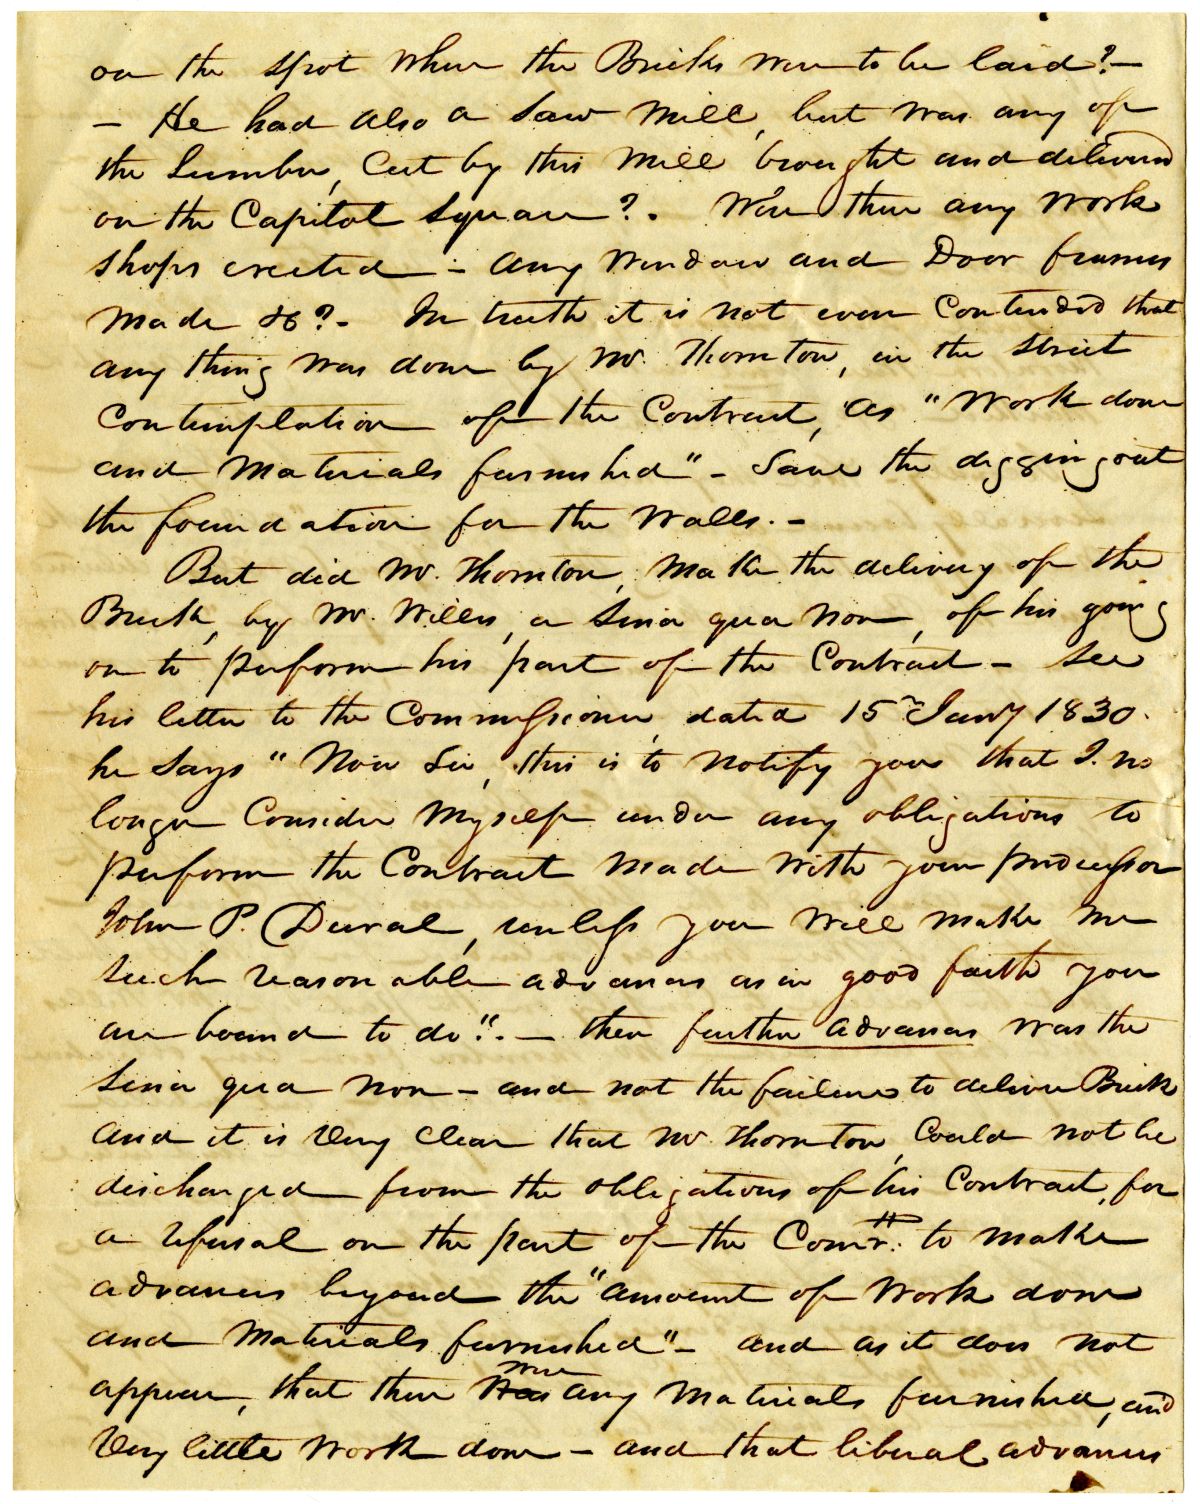 on the spot where the Bricks were to be laid?—
— He had also a Saw Mill, but was any of
the Lumber, Cut by this Mill brought and delivered
on the Capitol Square?. Were there any Work
shops erected – any Window and Door frames
made &c?– In truth it is not even Contended that
any thing was done by Mr. Thornton, in the street
Contemplation of the Contract, as "Work done
and Materials furnished" – Save the digging out
the foundation for the Walls. –
But did Mr. Thornton, Make the delivery of the
Brick, by Mr. Willis, a Sina qua non, of his going
on to perform his part of the Contract – See
his letter to the Commissioner, dated 15th Jany 1830.
he Says "Now Sir, this is to notify you that I. no
longer Consider Myself under any obligations to
perform the Contract Made With your predecessor
John P. Duval, unless you Will make me
such reasonable advances as in good faith you
are bound to do". — then further advances was the
Sina qua non – and not the failure to deliver Brick
and it is Very Clear that Mr. Thornton, Could not be
discharged from the obligations of his Contract, for
a refusal on the part of the Comr. to Make
advances beyond the "amount of Work done
and Materials furnished" – and as it does not
appear, that there were any Materials furnished, and
Very little Work done – and that liberal advances